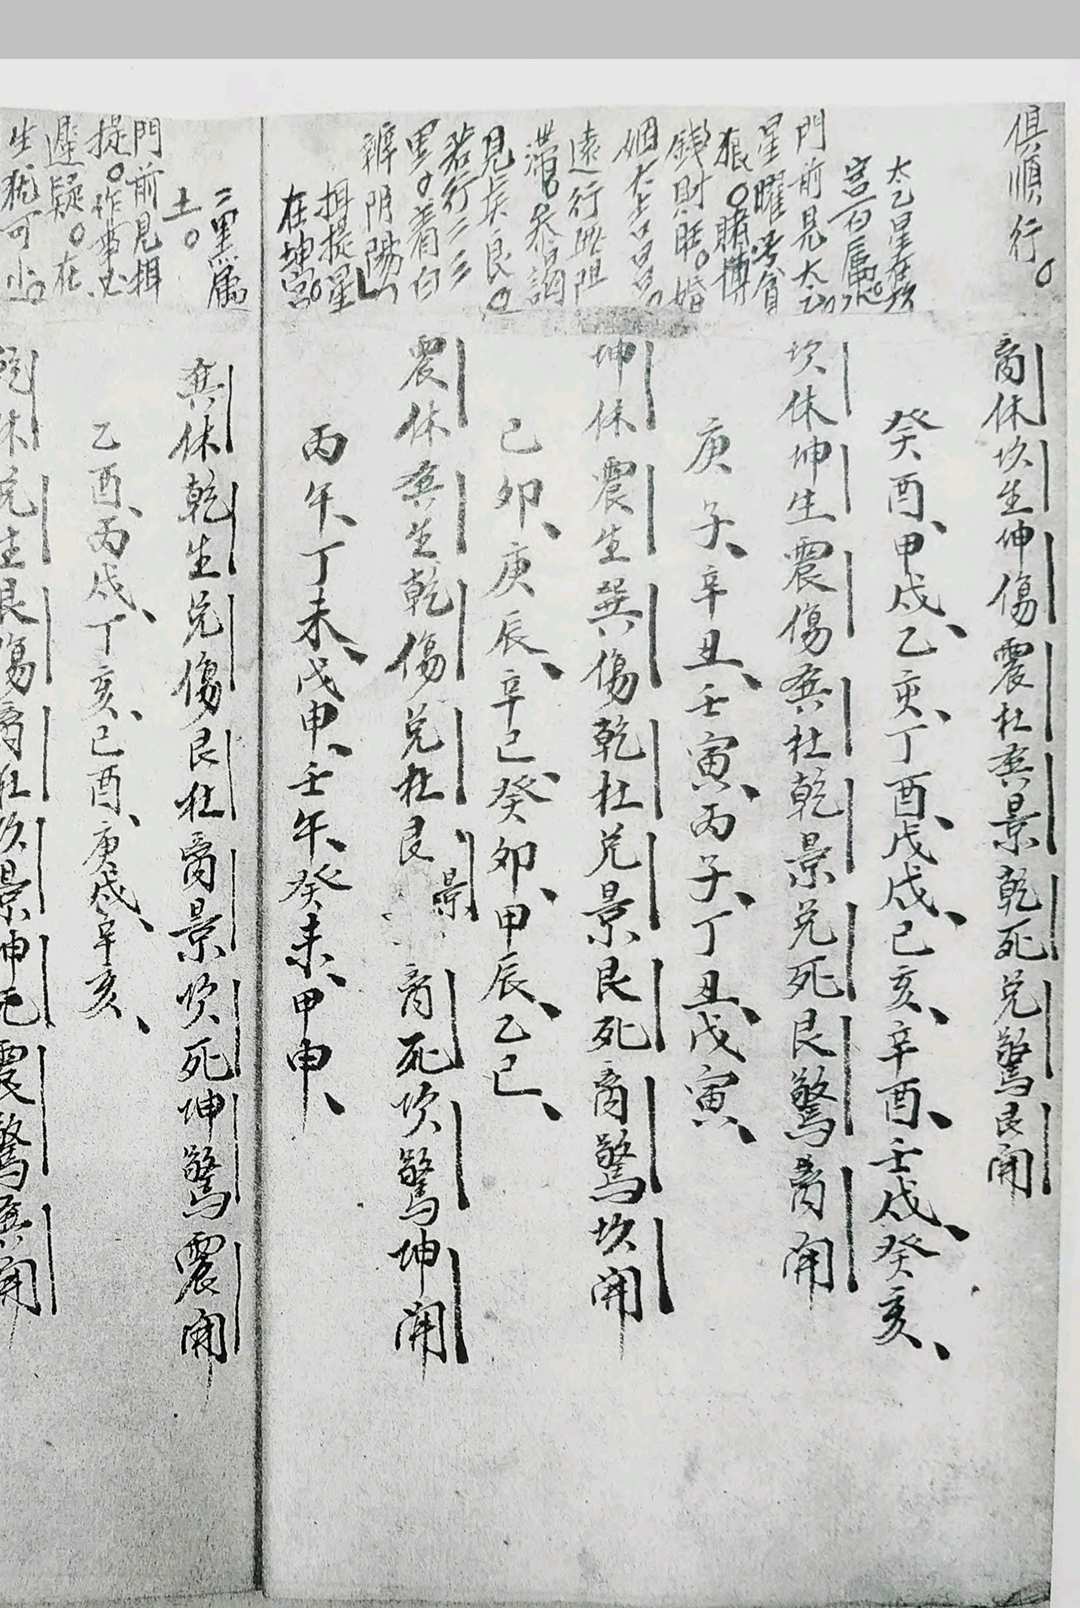 俱順行。
太乙星在坎
宮一白屬水。
門前見太乙
星曜号貪
狼。賭博
錢財旺。婚
姻大吉昌。
遠行無阻
滯。參謁
見賢良。
若行三三
里。着白
辨阴陽。
招提星
在坤宮。
二黑屬
土。
門前見招
提。作事必
遲疑。在
生猶可
离休坎生坤傷震杜巽景乾死兌驚艮開
癸酉、甲戌、乙亥、丁酉、戊戌、己亥、辛酉、壬戌、癸亥、
坎休坤生震傷巽杜乾景兌死艮驚离開
庚子、辛丑、壬寅、丙子、丁丑、戊寅、
坤休震生巽傷乾杜兌景艮死离驚坎開
己卯、庚辰、辛巳、癸卯、甲辰、乙巳、
震休巽生乾傷兌杜艮景离死坎驚坤開
丙午、丁未、戊申、壬午、癸未、甲申、
巽休乾生兌傷艮杜离景坎死坤驚震開
乙酉、丙戌、丁亥、己酉、庚戌、辛亥、
乾休兌生艮傷离杜坎景坤死震驚巽開